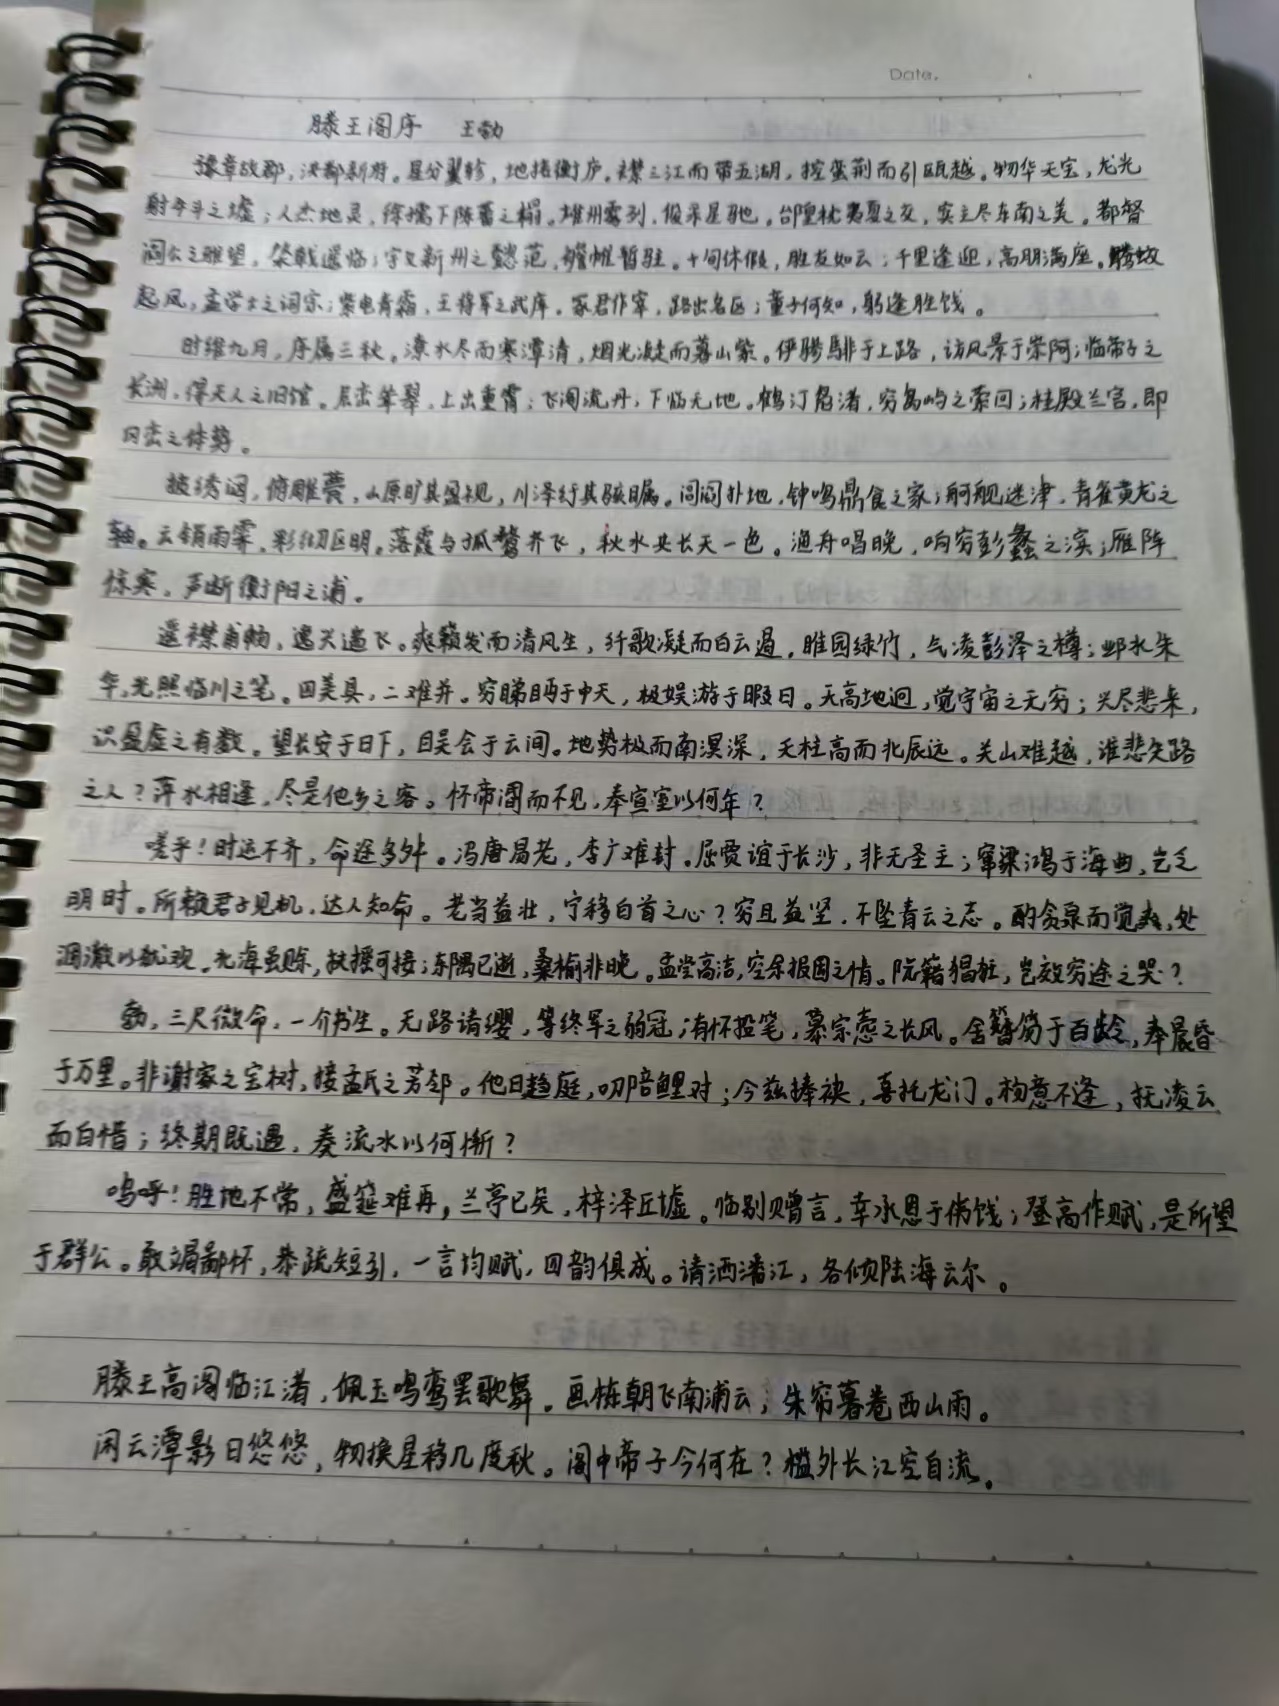 Date.
滕王阁序 王勃
豫章故郡,洪都新府。星分翼轸,地接衡庐。襟三江而带五湖,控蛮荆而引瓯越。物华天宝,龙光
射牛斗之墟;人杰地灵,徐孺下陈蕃之榻。雄州雾列,俊采星驰。台隍枕夷夏之交,宾主尽东南之美。都督
阎公之雅望,棨戟遥临;宇文新州之懿范,襜帷暂驻。十旬休假,胜友如云;千里逢迎,高朋满座。腾蛟
起凤,孟学士之词宗;紫电青霜,王将军之武库。家君作宰,路出名区;童子何知,躬逢胜饯。
时维九月,序属三秋。潦水尽而寒潭清,烟光凝而暮山紫。俨骖騑于上路,访风景于崇阿;临帝子之
长洲,得天人之旧馆。层峦耸翠,上出重霄;飞阁流丹,下临无地。鹤汀凫渚,穷岛屿之萦回;桂殿兰宫,即
冈峦之体势。
披绣闼,俯雕甍,山原旷其盈视,川泽纡其骇瞩。闾阎扑地,钟鸣鼎食之家;舸舰迷津,青雀黄龙之
轴。云销雨霁,彩彻区明。落霞与孤鹜齐飞,秋水共长天一色。渔舟唱晚,响穷彭蠡之滨;雁阵
惊寒,声断衡阳之浦。
遥襟甫畅,逸兴遄飞。爽籁发而清风生,纤歌凝而白云遏,睢园绿竹,气凌彭泽之樽;邺水朱
华,光照临川之笔。四美具,二难并。穷睇眄于中天,极娱游于暇日。天高地迥,觉宇宙之无穷;兴尽悲来,
识盈虚之有数。望长安于日下,目吴会于云间。地势极而南溟深,天柱高而北辰远。关山难越,谁悲失路
之人?萍水相逢,尽是他乡之客。怀帝阍而不见,奉宣室以何年?
嗟乎!时运不齐,命途多舛。冯唐易老,李广难封。屈贾谊于长沙,非无圣主;窜梁鸿于海曲,岂乏
明时。所赖君子见机,达人知命。老当益壮,宁移白首之心?穷且益坚,不坠青云之志。酌贪泉而觉爽,处
涸辙以犹欢。北海虽赊,扶摇可接;东隅已逝,桑榆非晚。孟尝高洁,空余报国之情。阮籍猖狂,岂效穷途之哭?
勃,三尺微命,一介书生。无路请缨,等终军之弱冠;有怀投笔,慕宗悫之长风。舍簪笏于百龄,奉晨昏
于万里。非谢家之宝树,接孟氏之芳邻。他日趋庭,叨陪鲤对;今兹捧袂,喜托龙门。杨意不逢,抚凌云
而自惜;终期既遇,奏流水以何惭?
呜呼!胜地不常,盛筵难再,兰亭已矣,梓泽丘墟。临别赠言,幸承恩于伟饯;登高作赋,是所望
于群公。敢竭鄙怀,恭疏短引,一言均赋,四韵俱成。请洒潘江,各倾陆海云尔。
滕王高阁临江渚,佩玉鸣鸾罢歌舞。画栋朝飞南浦云;朱帘暮卷西山雨。
闲云潭影日悠悠,物换星移几度秋。阁中帝子今何在?槛外长江空自流。